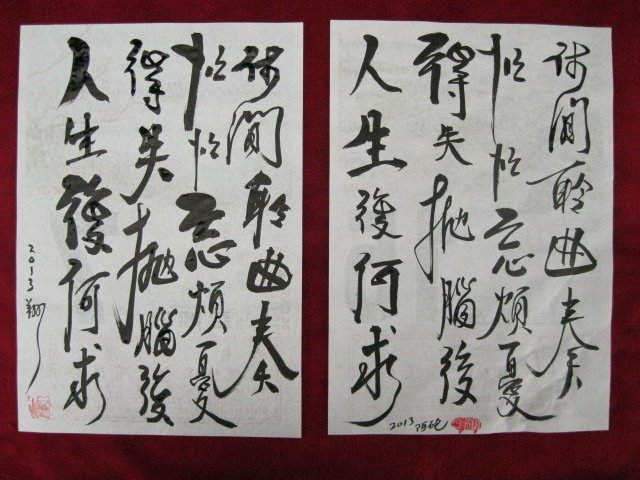 閒聆曲奏
忘煩憂
得失拋腦後
人生復何求
2013
閒聆曲奏
忘煩憂
得失拋腦後
人生復何求
2013